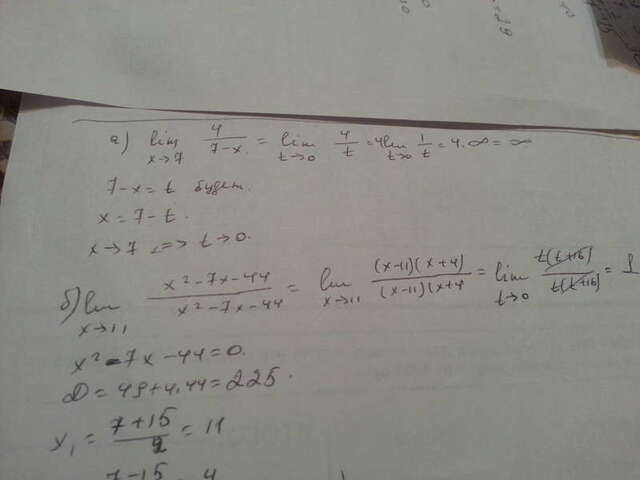 а) lim x→7 4/(7-x) = lim t→0 4/t = 4 lim t→0 1/t = 4·∞ = ∞
7-x = t будет.
x = 7-t.
x→7 <=> t→0.
б) lim x→11 (x²-7x-44)/(x²-7x-44) = lim x→11 (x-11)(x+4)/(x-11)(x+4 = lim t→0 t(t+16)/t(t+16) = 1
x²-7x-44=0.
D = 49+4.44 = 225.
x₁ = (7+15)/2 = 11
7-15 4